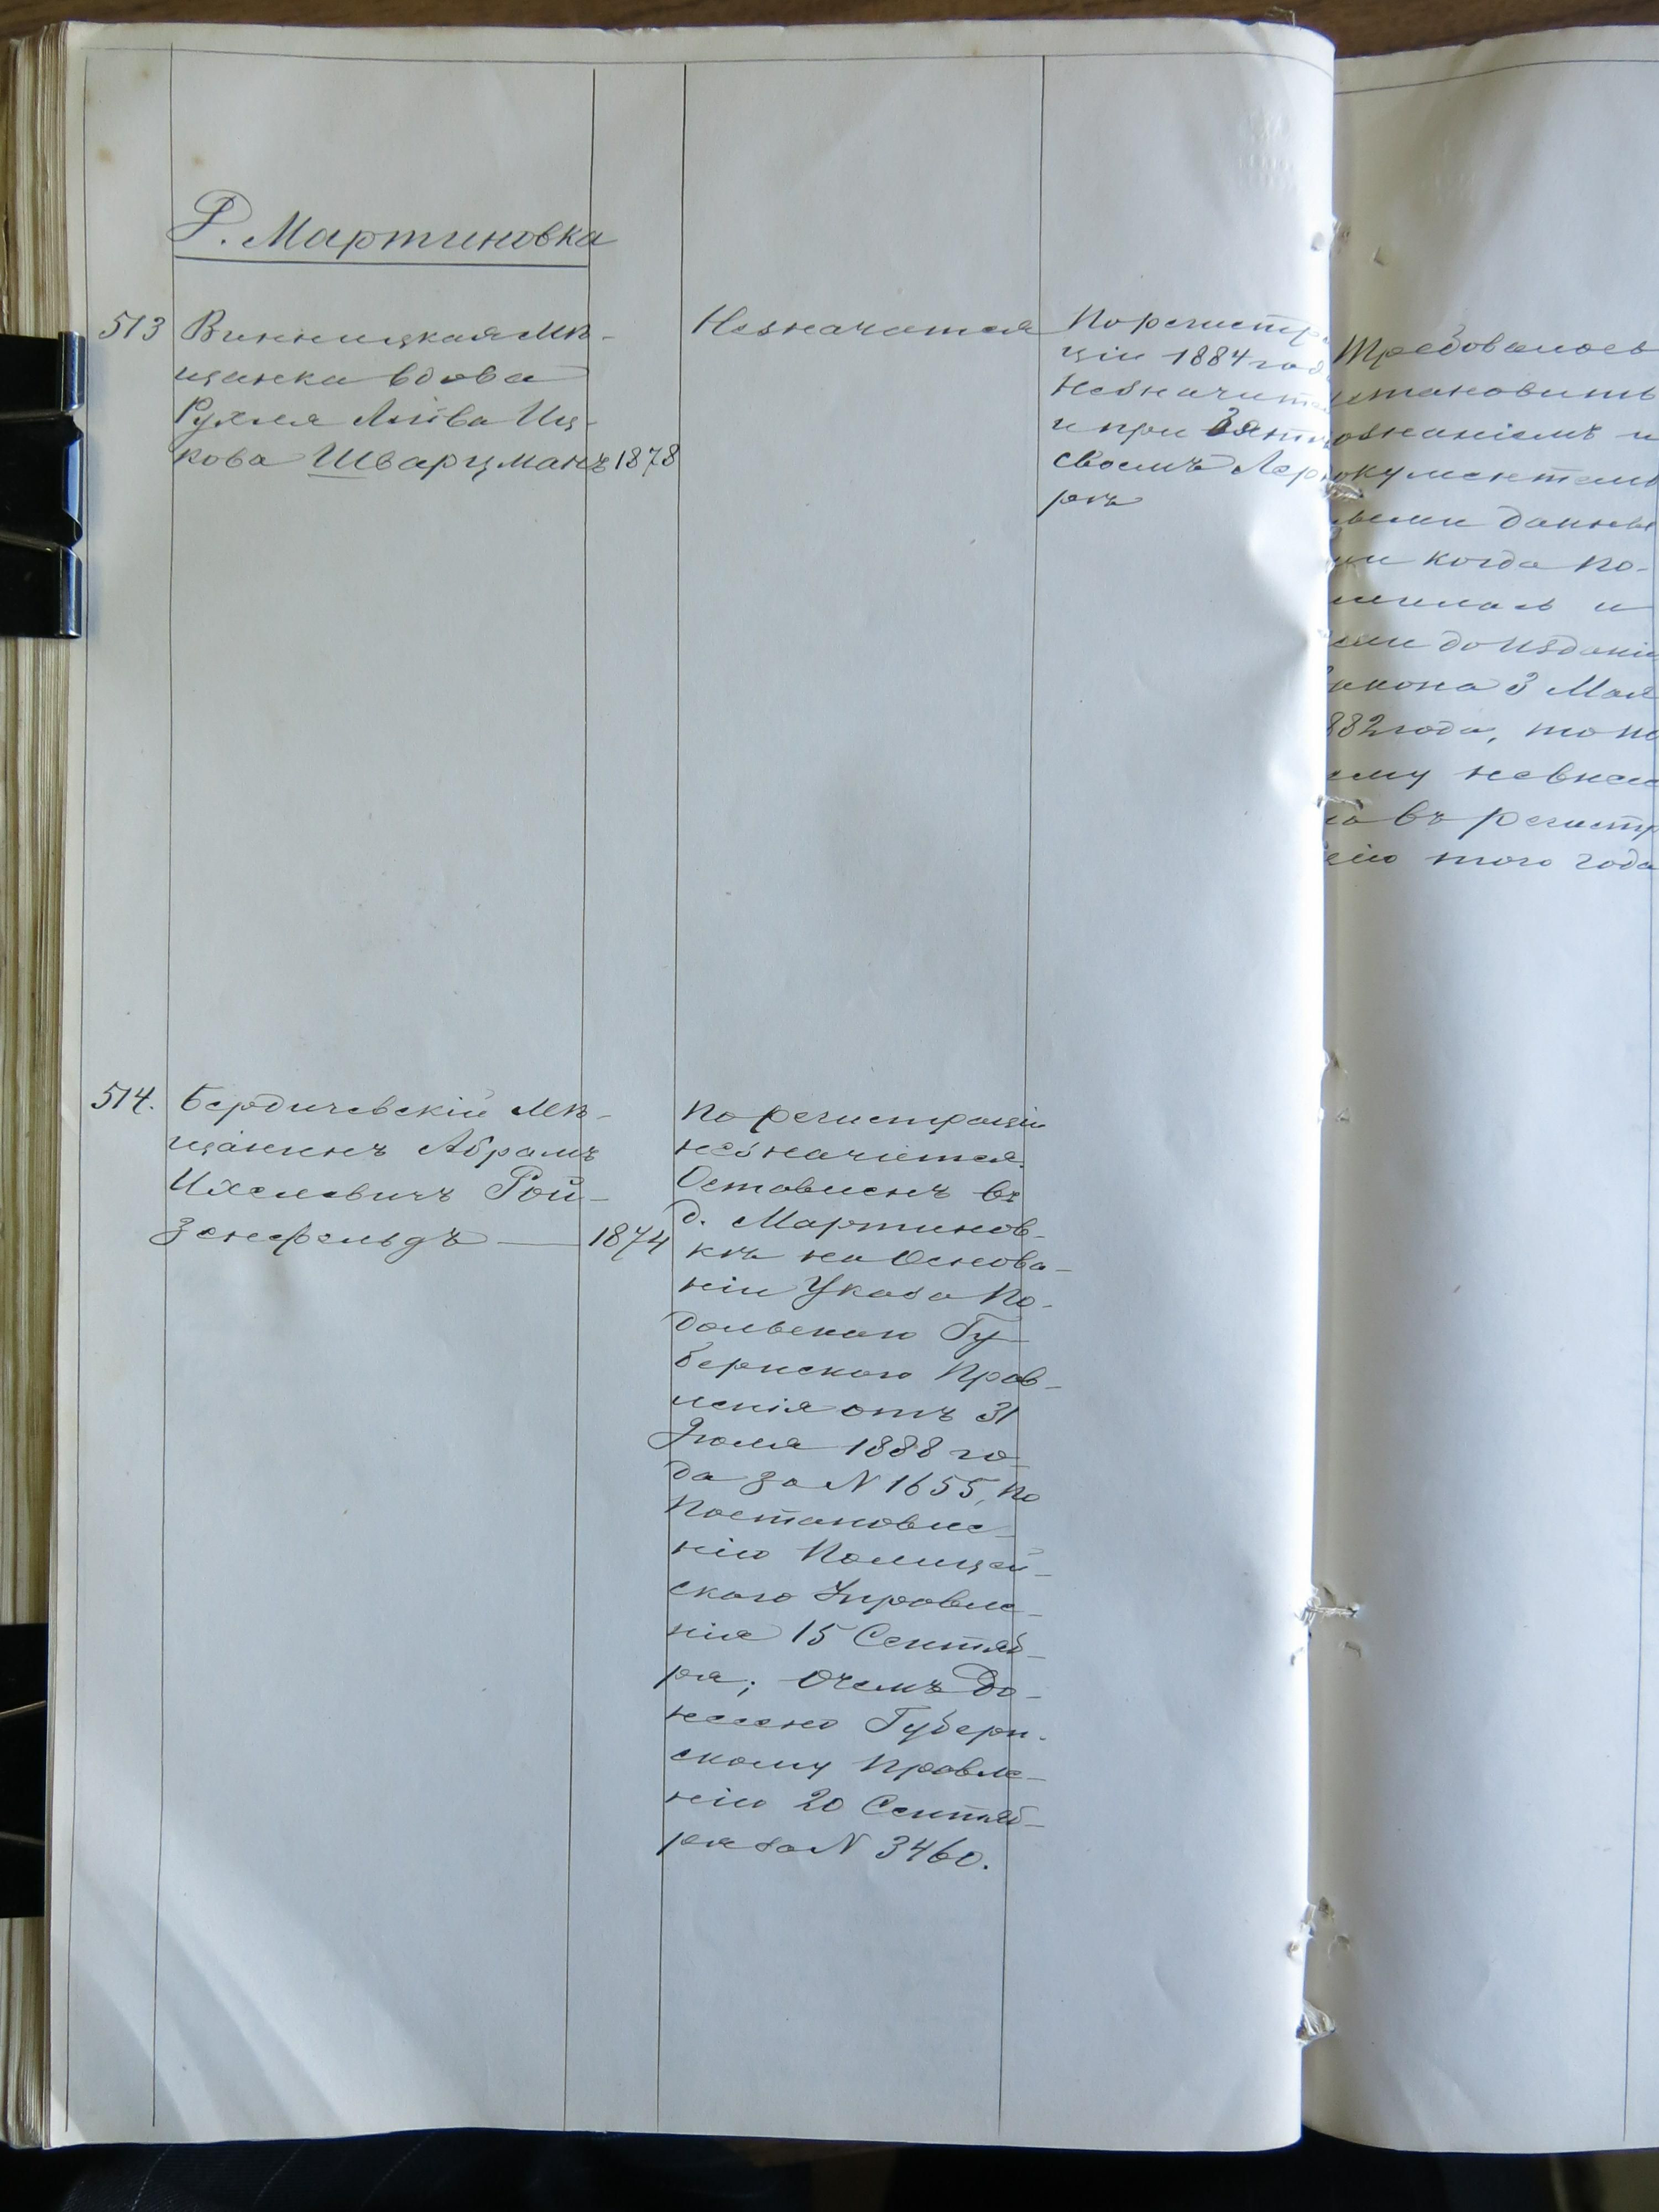 Д. Мартиновка
513 Винницкая мѣ-
щанка вдова
Рухля Лейва Иц-
кова Шварцманъ 1878
Незначится
По регистра
ціи 1884 года
незначится
и при Зятѣ
своемъ Лер
рѣ
Требовалось
установить
дознаніемъ и
документаль
ными данны
ми когда по-
селилась и
если до изданія
закона 3 Мая
1882 года, то по
чему невнесе
на въ регистра
цію того года
514. Бердичевскій мѣ-
щанинъ Абрамъ
Ихелевичъ Рой-
зенфельдъ — 1874
по регистраціи
незначится.
Оставленъ въ
д. Мартинов-
кѣ на основа-
ніи Указа По-
дольскаго Гу-
бернскаго Прав-
ленія отъ 31
Іюля 1888 го-
да за N 1655, по
постановле-
нію Полицей-
скаго Управле-
нія 15 Сентяб-
ря; о чемъ до-
несено Губерн-
скому Правле-
нію 20 Сентяб-
ря за N 3460.